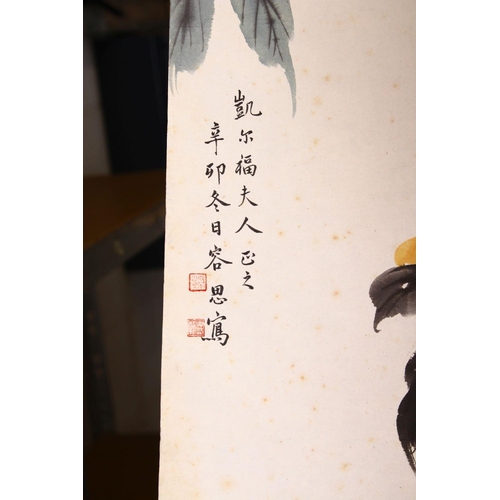 凱尔福夫人正之
辛卯冬日容思寫